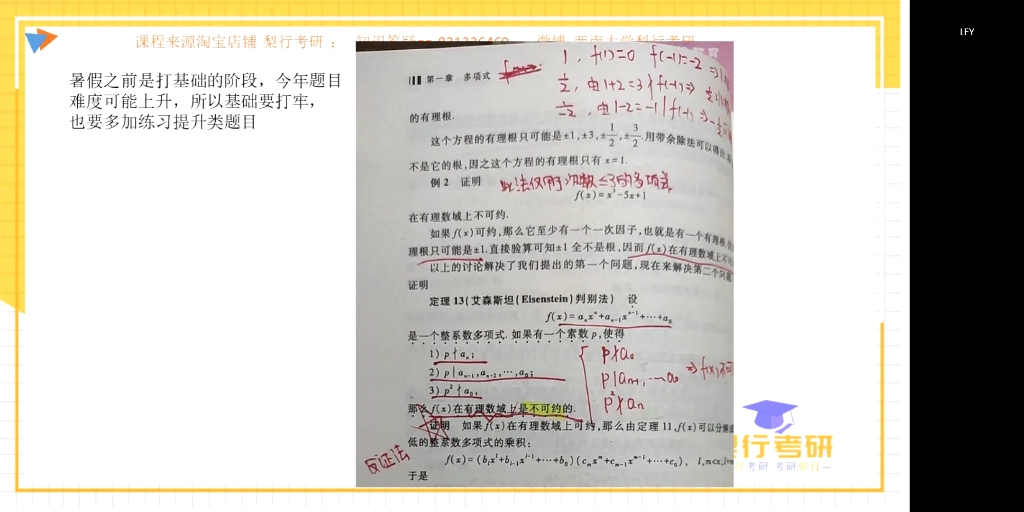 课程来源淘宝店铺 梨行考研 ;
LFY
暑假之前是打基础的阶段，今年题目
难度可能上升，所以基础要打牢，
也要多加练习提升类题目
第一章 多项式
1, f(1)=0 f(-1)=-2 ⇒
1/2, 由1+2=3∤f(-1)⇒
-1/2, 由1-2=-1|f(-1)⇒
的有理根.
这个方程的有理根只可能是±1,±3,±1/2,±3/2.用带余除法可以得出,
不是它的根,因之这个方程的有理根只有 x=1.
例2 证明
此法仅用于次数≤3的多项式
f(x)=x³-5x+1
在有理数域上不可约.
如果f(x)可约,那么它至少有一个一次因子,也就是有一个有理根.
理根只可能是±1.直接验算可知±1全不是根,因而f(x)在有理数域上不可
以上的讨论解决了我们提出的第一个问题,现在来解决第二个问题
证明
定理13(艾森斯坦(Eisenstein)判别法) 设
f(x)=aₙxⁿ+aₙ₋₁xⁿ⁻¹+⋯+a₀
是一个整系数多项式.如果有一个素数p,使得
1) p∤aₙ;
2) p|aₙ₋₁,aₙ₋₂,⋯,a₀;
3) p²∤a₀,
p∤a₀
p|aₙ₋₁,⋯a₀
p²∤aₙ
⇒f(x)不可
那么f(x)在有理数域上是不可约的.
证明 如果f(x)在有理数域上可约,那么由定理11,f(x)可以分解成
低的整系数多项式的乘积:
反证法
f(x)=(bₗxˡ+bₗ₋₁xˡ⁻¹+⋯+b₀)(cₘxᵐ+cₘ₋₁xᵐ⁻¹+⋯+c₀), l,m<n,l+m
于是
梨行考研